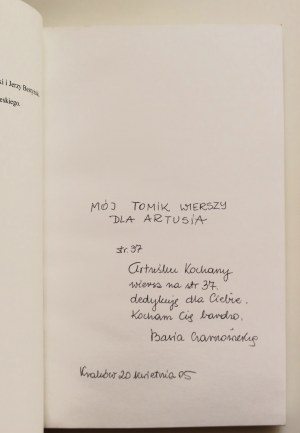 i i Jerzy Bartyński
eskiego.
MÓJ TOMIK WIERSZY
DLA ARTUSIA
str. 37
Artuśku Kochany
wiersz na str 37.
dedykuję dla Ciebie.
Kocham Cię bardzo.
Basia
Kraków 20 kwietnia 05